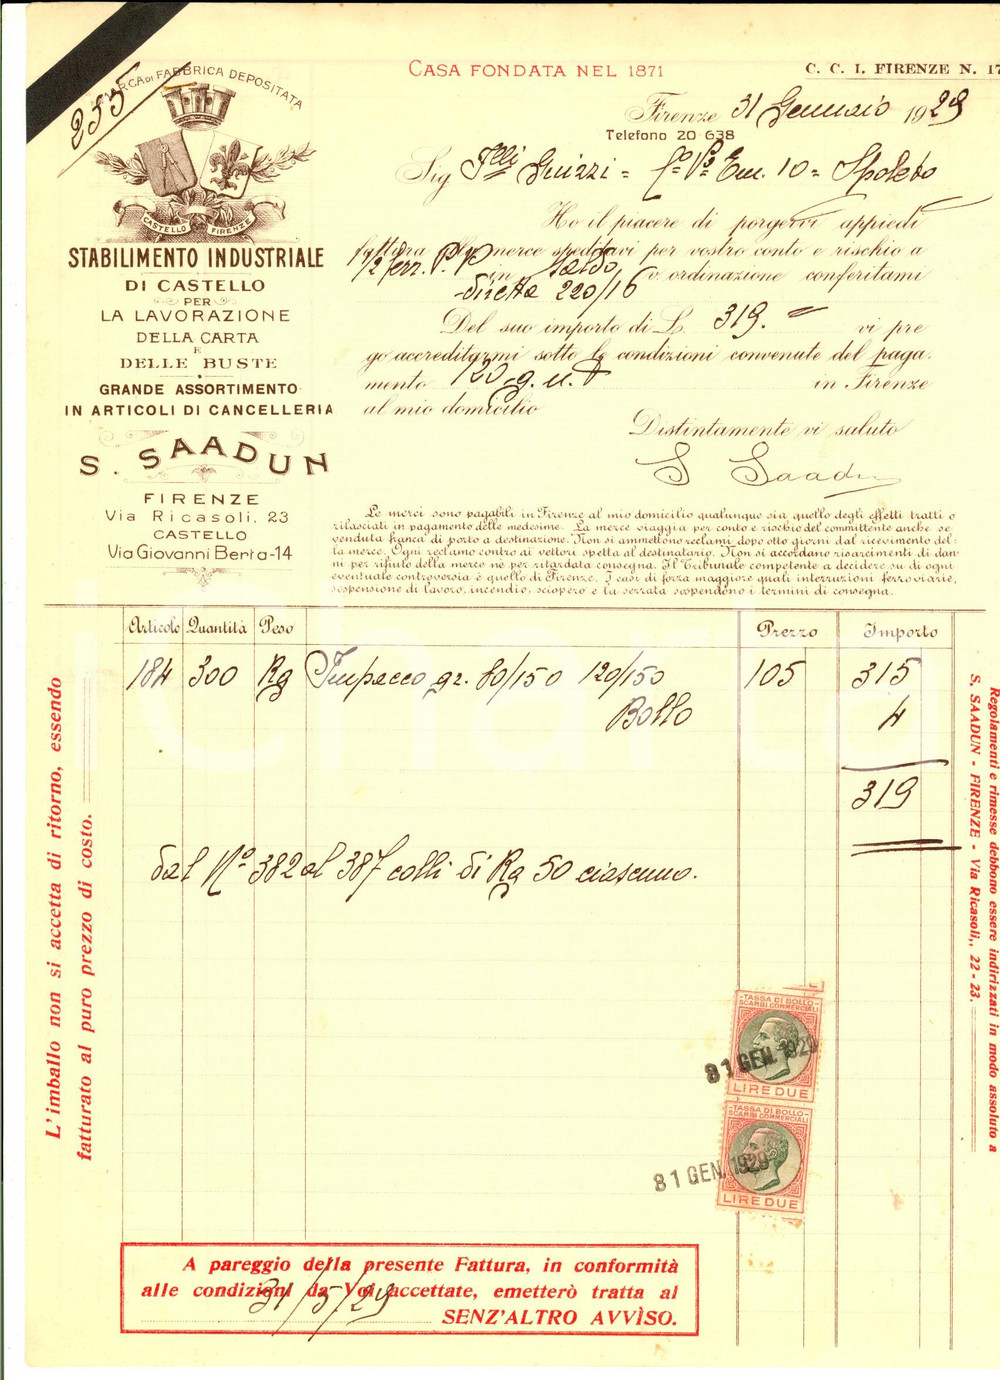 255
MARCA DI FABBRICA DEPOSITATA
CASTELLO FIRENZE
STABILIMENTO INDUSTRIALE
DI CASTELLO
PER
LA LAVORAZIONE
DELLA CARTA
E
DELLE BUSTE
GRANDE ASSORTIMENTO
IN ARTICOLI DI CANCELLERIA
S. SAADUN
FIRENZE
Via Ricasoli, 23
CASTELLO
Via Giovanni Berta-14
CASA FONDATA NEL 1871
C. C. I. FIRENZE N. 17
Firenze 31 Gennaio 1929
Telefono 20 638
Sig F.lli Guizzi = C.o V.o Em. 10 = Spoleto
Ho il piacere di porgervi appiedi
fattura della merce speditavi per vostro conto e rischio a
1/2 ferr. P.V. in saldo v. ordinazione conferitami
diretta 220/16
Del suo importo di L. 319. = vi pre
go accreditarmi sotto le condizioni convenute del paga-
mento 120 g. in Firenze
al mio domicilio
Distintamente vi saluto
S Saadun
Le merci sono pagabili in Firenze al mio domicilio qualunque sia quello degli effetti tratti o
rilasciati in pagamento delle medesime. La merce viaggia per conto e rischio del committente anche se
venduta franca di porto a destinazione. Non si ammettono reclami dopo otto giorni dal ricevimento del-
la merce. Ogni reclamo contro ai vettori spetta al destinatario. Non si accordano risarcimenti di dan-
ni per rifiuto della merce nè per ritardata consegna. Il Tribunale competente a decidere su di ogni
eventuale controversia è quello di Firenze. I casi di forza maggiore quali interruzioni ferroviarie,
sospensione di lavoro, incendio, sciopero e la serrata sospendono i termini di consegna.
Articolo Quantità Peso Prezzo Importo
184 300 Kg Impacco gr. 80/150 120/150 105 315
Bollo 4
319
dal N° 382 al 387 colli di Kg 50 ciascuno.
L'imballo non si accetta di ritorno, essendo
fatturato al puro prezzo di costo.
Regolamenti e rimesse debbono essere indirizzati in modo assoluto a
S. SAADUN - FIRENZE - Via Ricasoli,, 22 - 23.
TASSA DI BOLLO
SCAMBI COMMERCIALI
31 GEN. 1929
LIRE DUE
TASSA DI BOLLO
SCAMBI COMMERCIALI
31 GEN. 1929
LIRE DUE
A pareggio della presente Fattura, in conformità
alle condizioni da Voi accettate, emetterò tratta al
31/5/29 SENZ'ALTRO AVVISO.